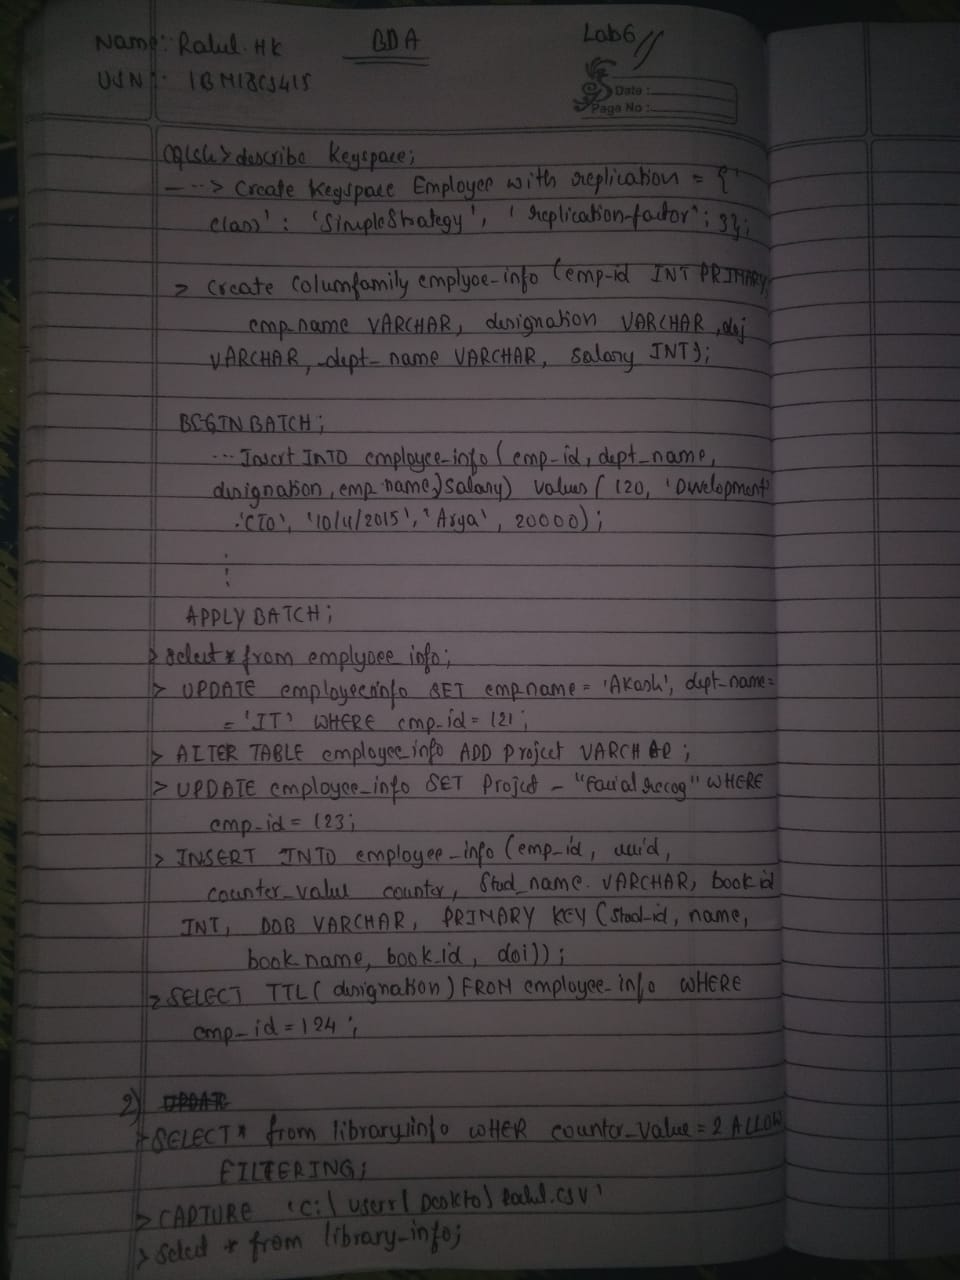 Name: Rahul.HK BDA Lab6
USN: 1BM18CS415
Date:
Page No:
cqlsh> describe keyspace;
---> Create keyspace Employee with replication = {'
class' : 'SimpleStrategy', 'replication-factor': 3};
> Create Columfamily emplyoe-info (emp-id INT PRIMARY,
emp_name VARCHAR, designation VARCHAR, doj
VARCHAR, dept_name VARCHAR, Salary INT);
BEGIN BATCH;
... Insert INTO employee_info (emp-id, dept_name,
designation, emp name, salary) values (120, 'Development'
'CTO', '10/4/2015', 'Arya', 20000);
APPLY BATCH;
> select * from emplyoee info;
> UPDATE employeeinfo SET emp name = 'Akash', dept-name=
= 'IT' WHERE emp-id = 121;
> ALTER TABLE employee_info ADD Project VARCHAR;
> UPDATE employee_info SET Project - "Facial recog" WHERE
emp-id = 123;
> INSERT INTO employee_info (emp-id, uuid,
counter_value counter, Stud_name. VARCHAR, book id
INT, DOB VARCHAR, PRIMARY KEY (Stud-id, name,
book name, book-id, doi));
> SELECT TTL( designation) FROM employee-info WHERE
emp-id = 124;
2) UPDATE
> SELECT * from library.info WHER counter_value = 2 ALLOW
FILTERING;
> CAPTURE 'C:\ userr\ Deskto\ Rahul.csv'
> select * from library_info;